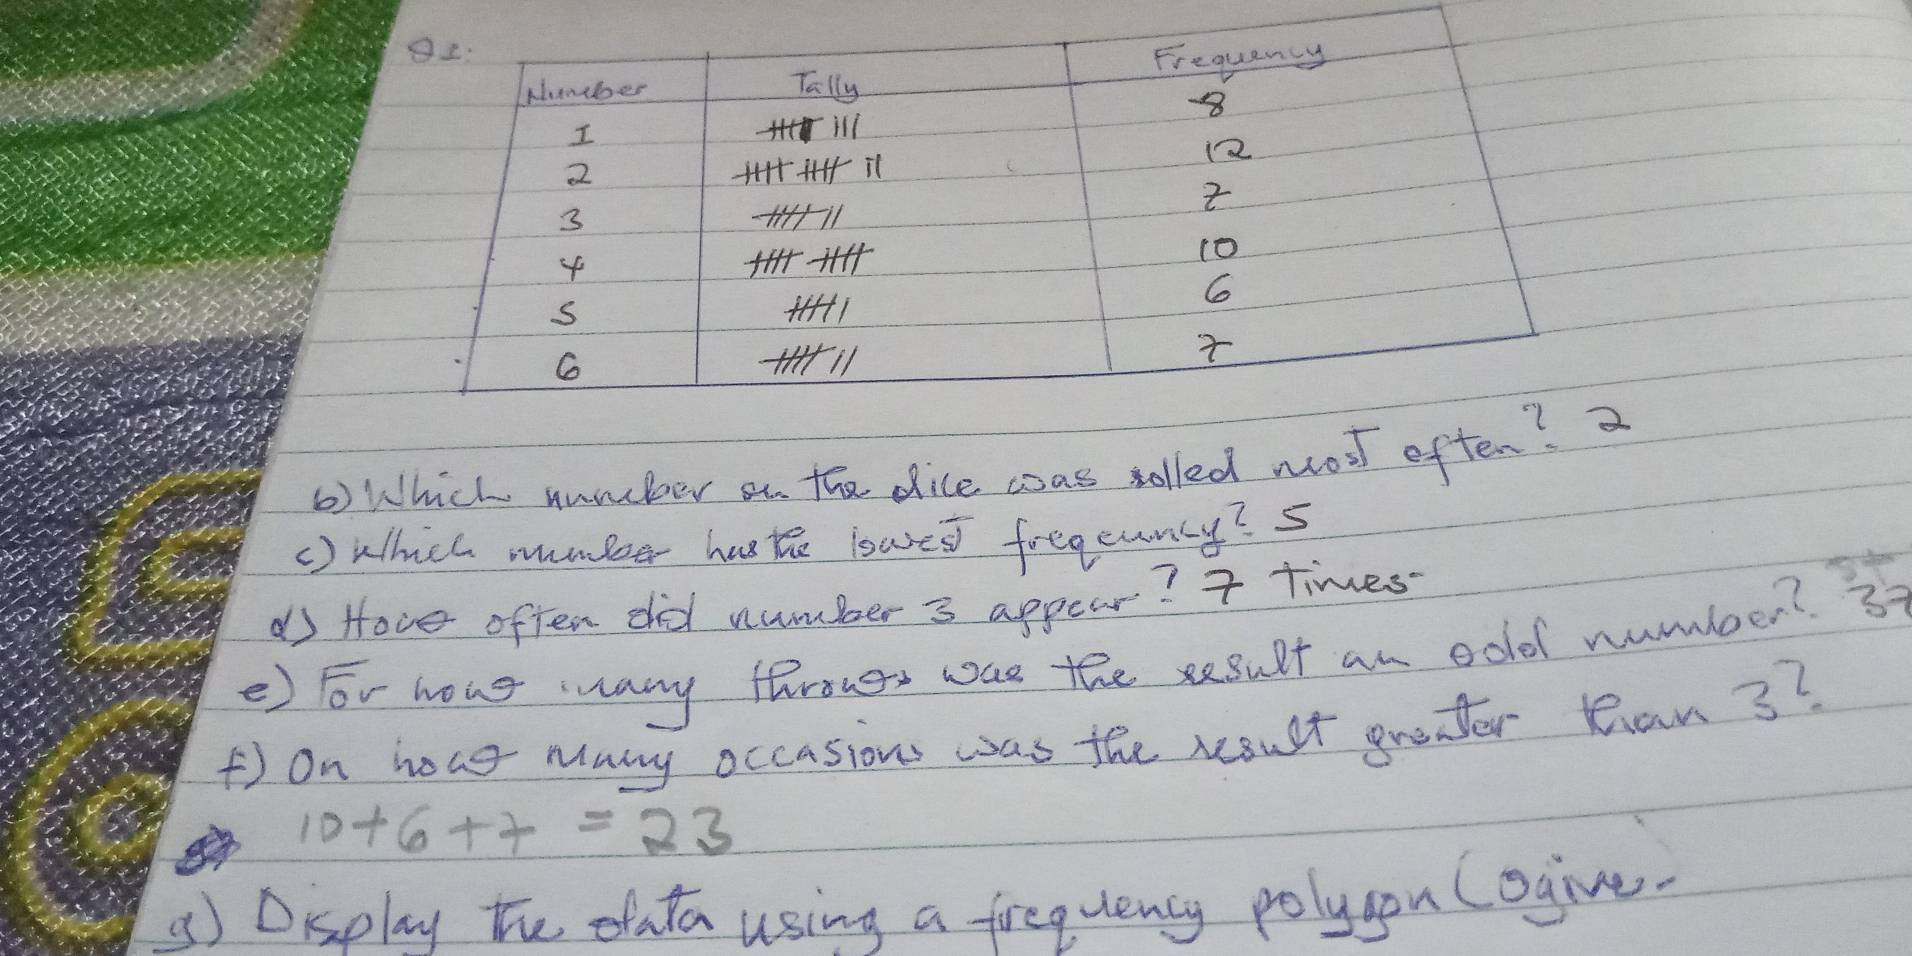 Q1.
Number Tally Frequency
1 卌 III 8
2 卌 卌 II 12
3 卌 II 7
4 卌 卌 10
5 卌 I 6
6 卌 II 7
b) Which number on the dice was rolled most often? 2
c) Which number has the lowest freqeuncy? 5
d) How often did number 3 appear? 7 times
e) For how many throws was the result an odd number? 37
f) On how many occasions was the result greater than 3?
10+6+7 = 23
g) Display the data using a frequency polygon (ogive.